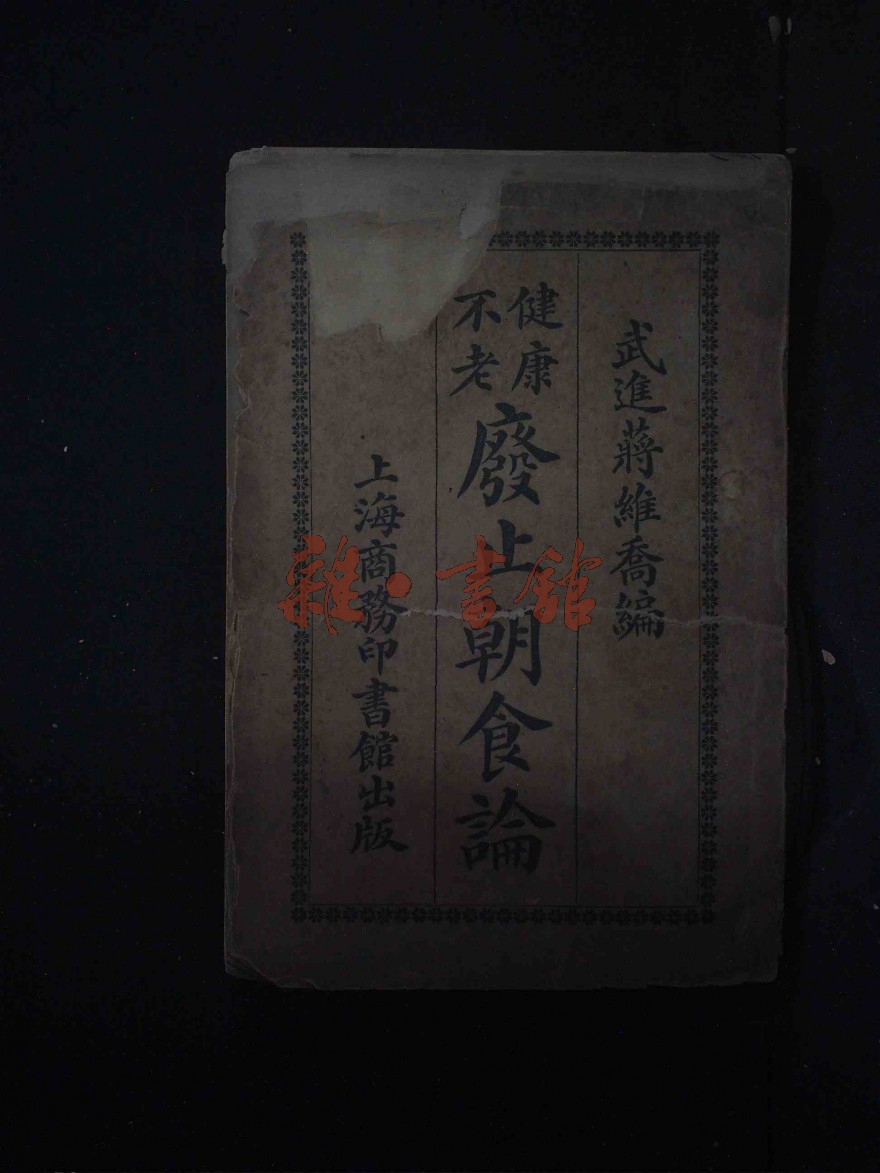 武進蔣維喬編
健康
不老
廢止朝食論
上海商務印書館出版
雜·書館